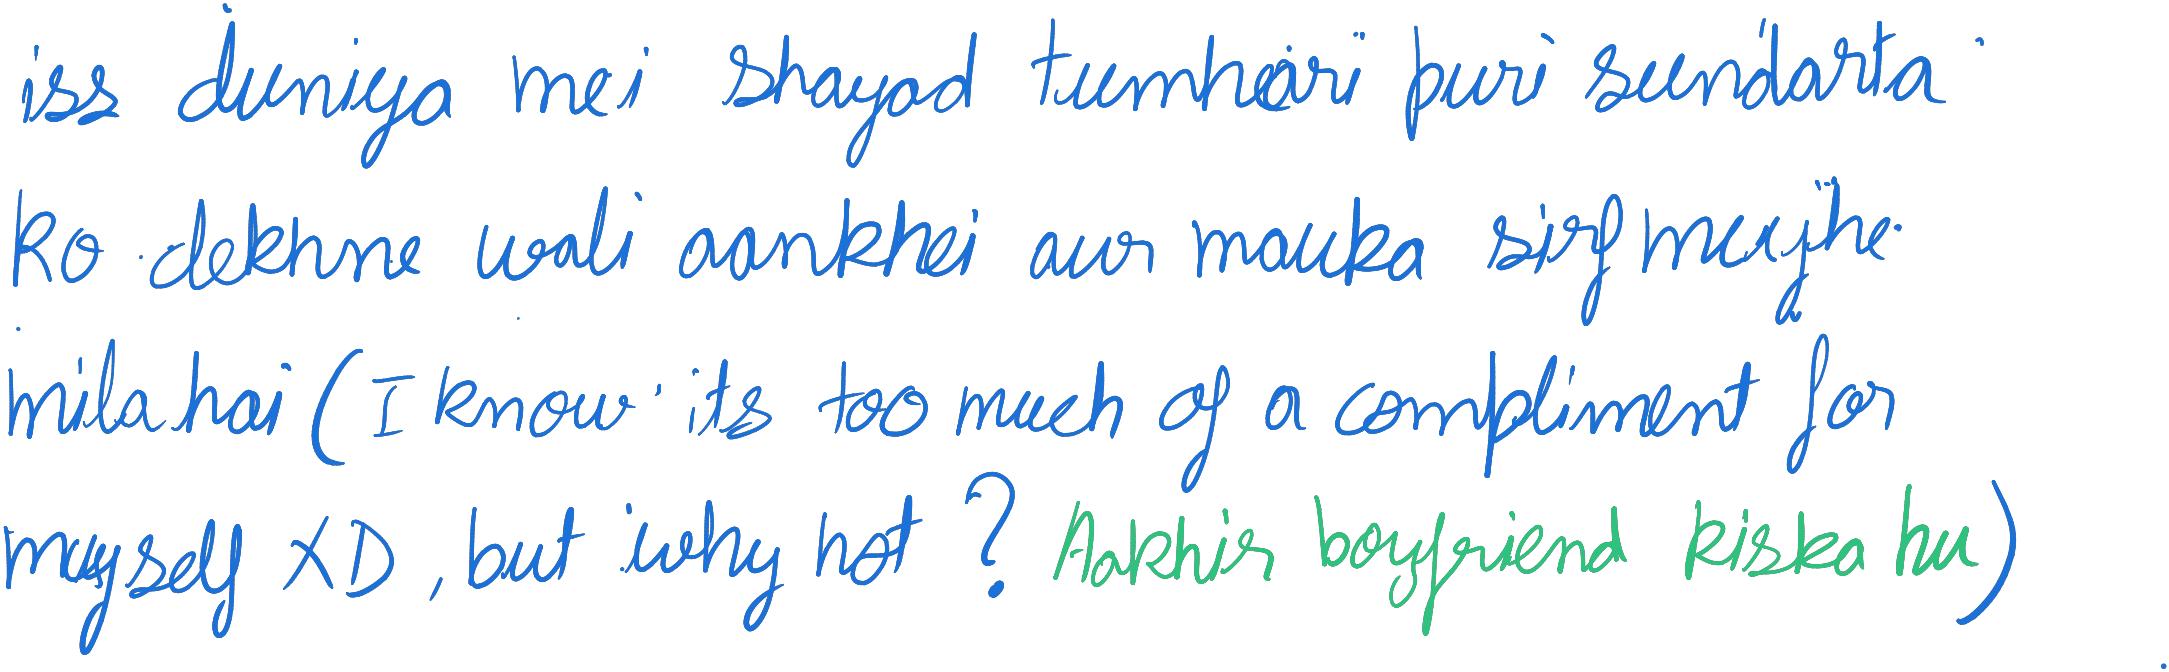 iss duniya mei shayad tumhari puri sundarta
ko dekhne wali aankhei aur mauka sirf mujhe
mila hai (I know its too much of a compliment for
myself XD, but why not? Aakhir boyfriend kiska hu)